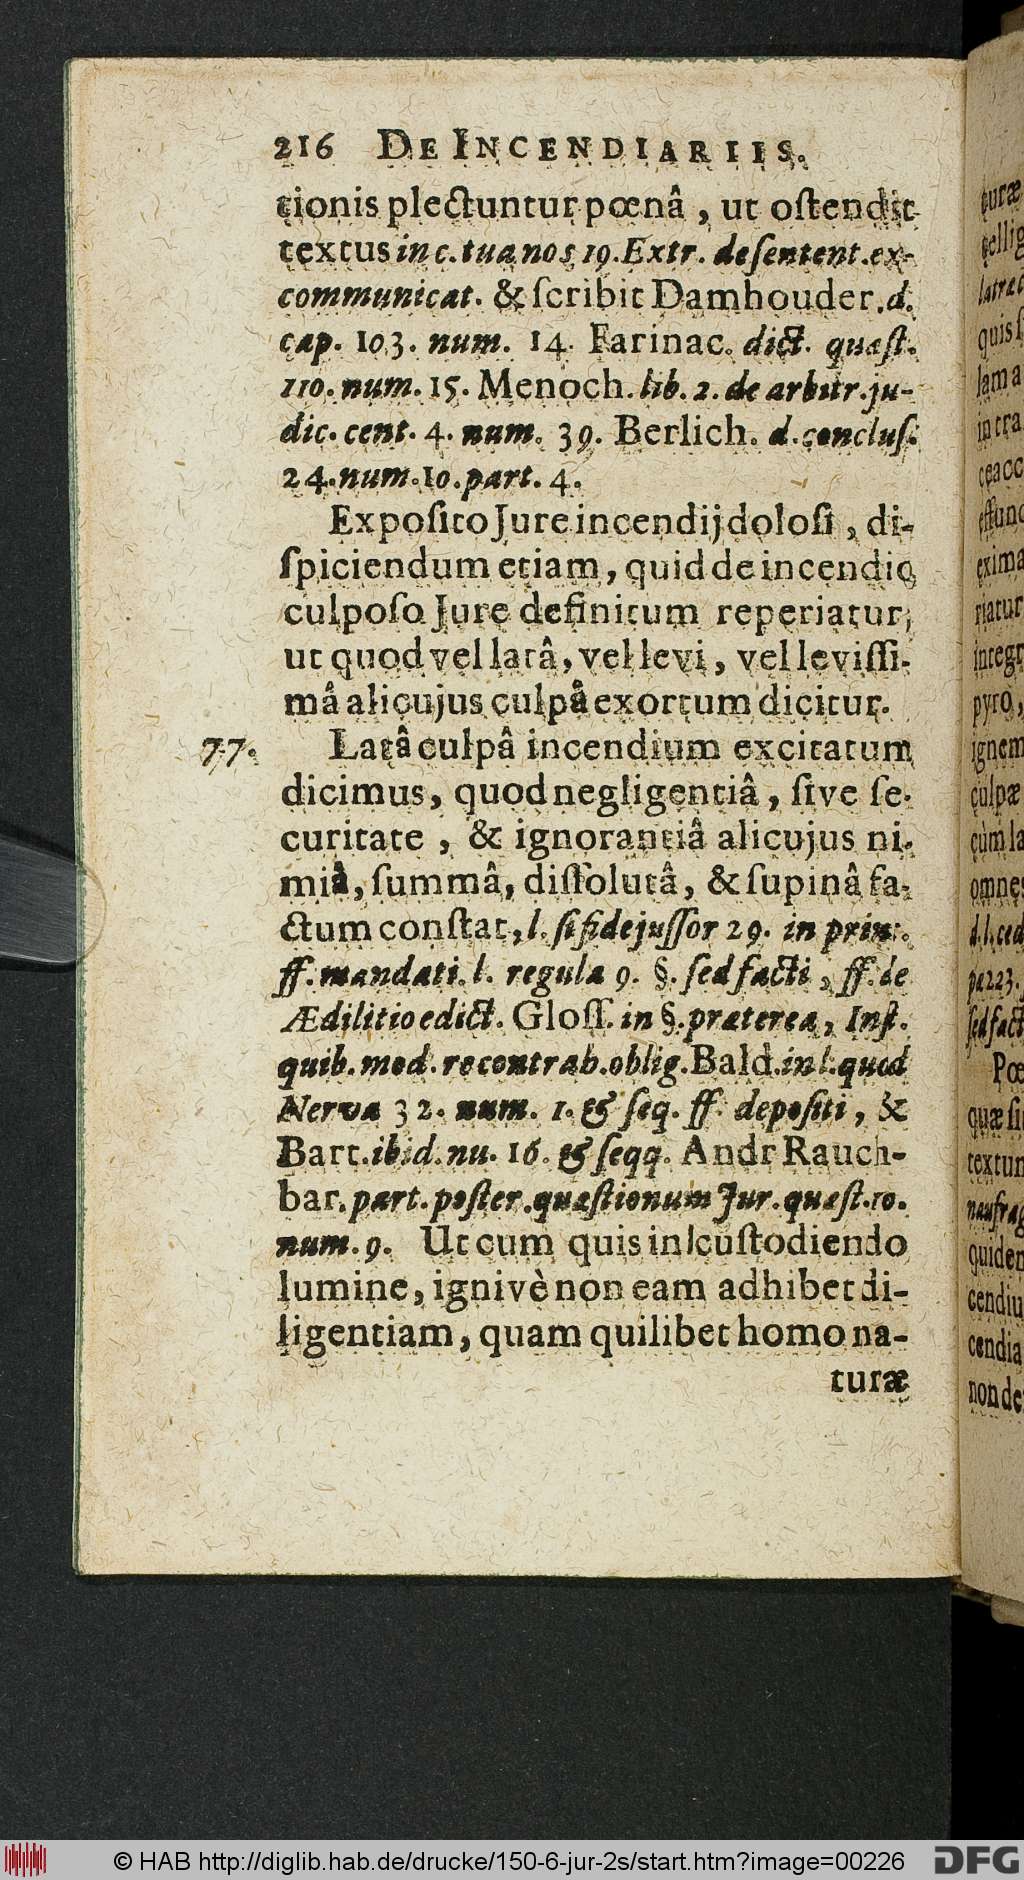 216 DE INCENDIARIIS.
tionis plectuntur pœnâ, ut ostendit
textus in c. tua nos 19. Extr. de sentent. ex-
communicat. & scribit Damhouder. d.
cap. 103. num. 14. Farinac. dict. quæst.
110. num. 15. Menoch. lib. 2. de arbitr. ju-
dic. cent. 4. num. 39. Berlich. d. conclus.
24. num. 10. part. 4.
Exposito Jure incendij dolosi, di-
spiciendum etiam, quid de incendio
culposo Jure definitum reperiatur,
ut quod vel latâ, vel levi, vel levissi-
mâ alicujus culpâ exortum dicitur.
77. Latâ culpâ incendium excitatum
dicimus, quod negligentiâ, sive se-
curitate, & ignorantiâ alicujus ni-
miâ, summâ, dissolutâ, & supinâ fa-
ctum constat, l. si fidejussor 29. in prin.
ff. mandati. l. regula 9. §. sed facti, ff. de
Ædilitio edict. Gloss. in §. præterea, Inst.
quib. mod. re contrah. oblig. Bald. in l. quod
Nerva 32. num. 1. & seq. ff. depositi, &
Bart. ibid. nu. 16. & seqq. Andr Rauch-
bar. part. poster. quæstionum Jur. quæst. 10.
num. 9. Ut cum quis in custodiendo
lumine, ignivè non eam adhibet di-
ligentiam, quam quilibet homo na-
turæ
turæ
tellig
latræ
quis s
lam a
in tra
ceacc
effunc
exima
riatur
integr
pyro,
ignem
culpæ
cùm la
omnes
d. l. ced
pa 223.
sed fact
Pœ
quæ sit
textum
naufrag
quiden
cendiu
cendia
non de
© HAB http://diglib.hab.de/drucke/150-6-jur-2s/start.htm?image=00226 DFG